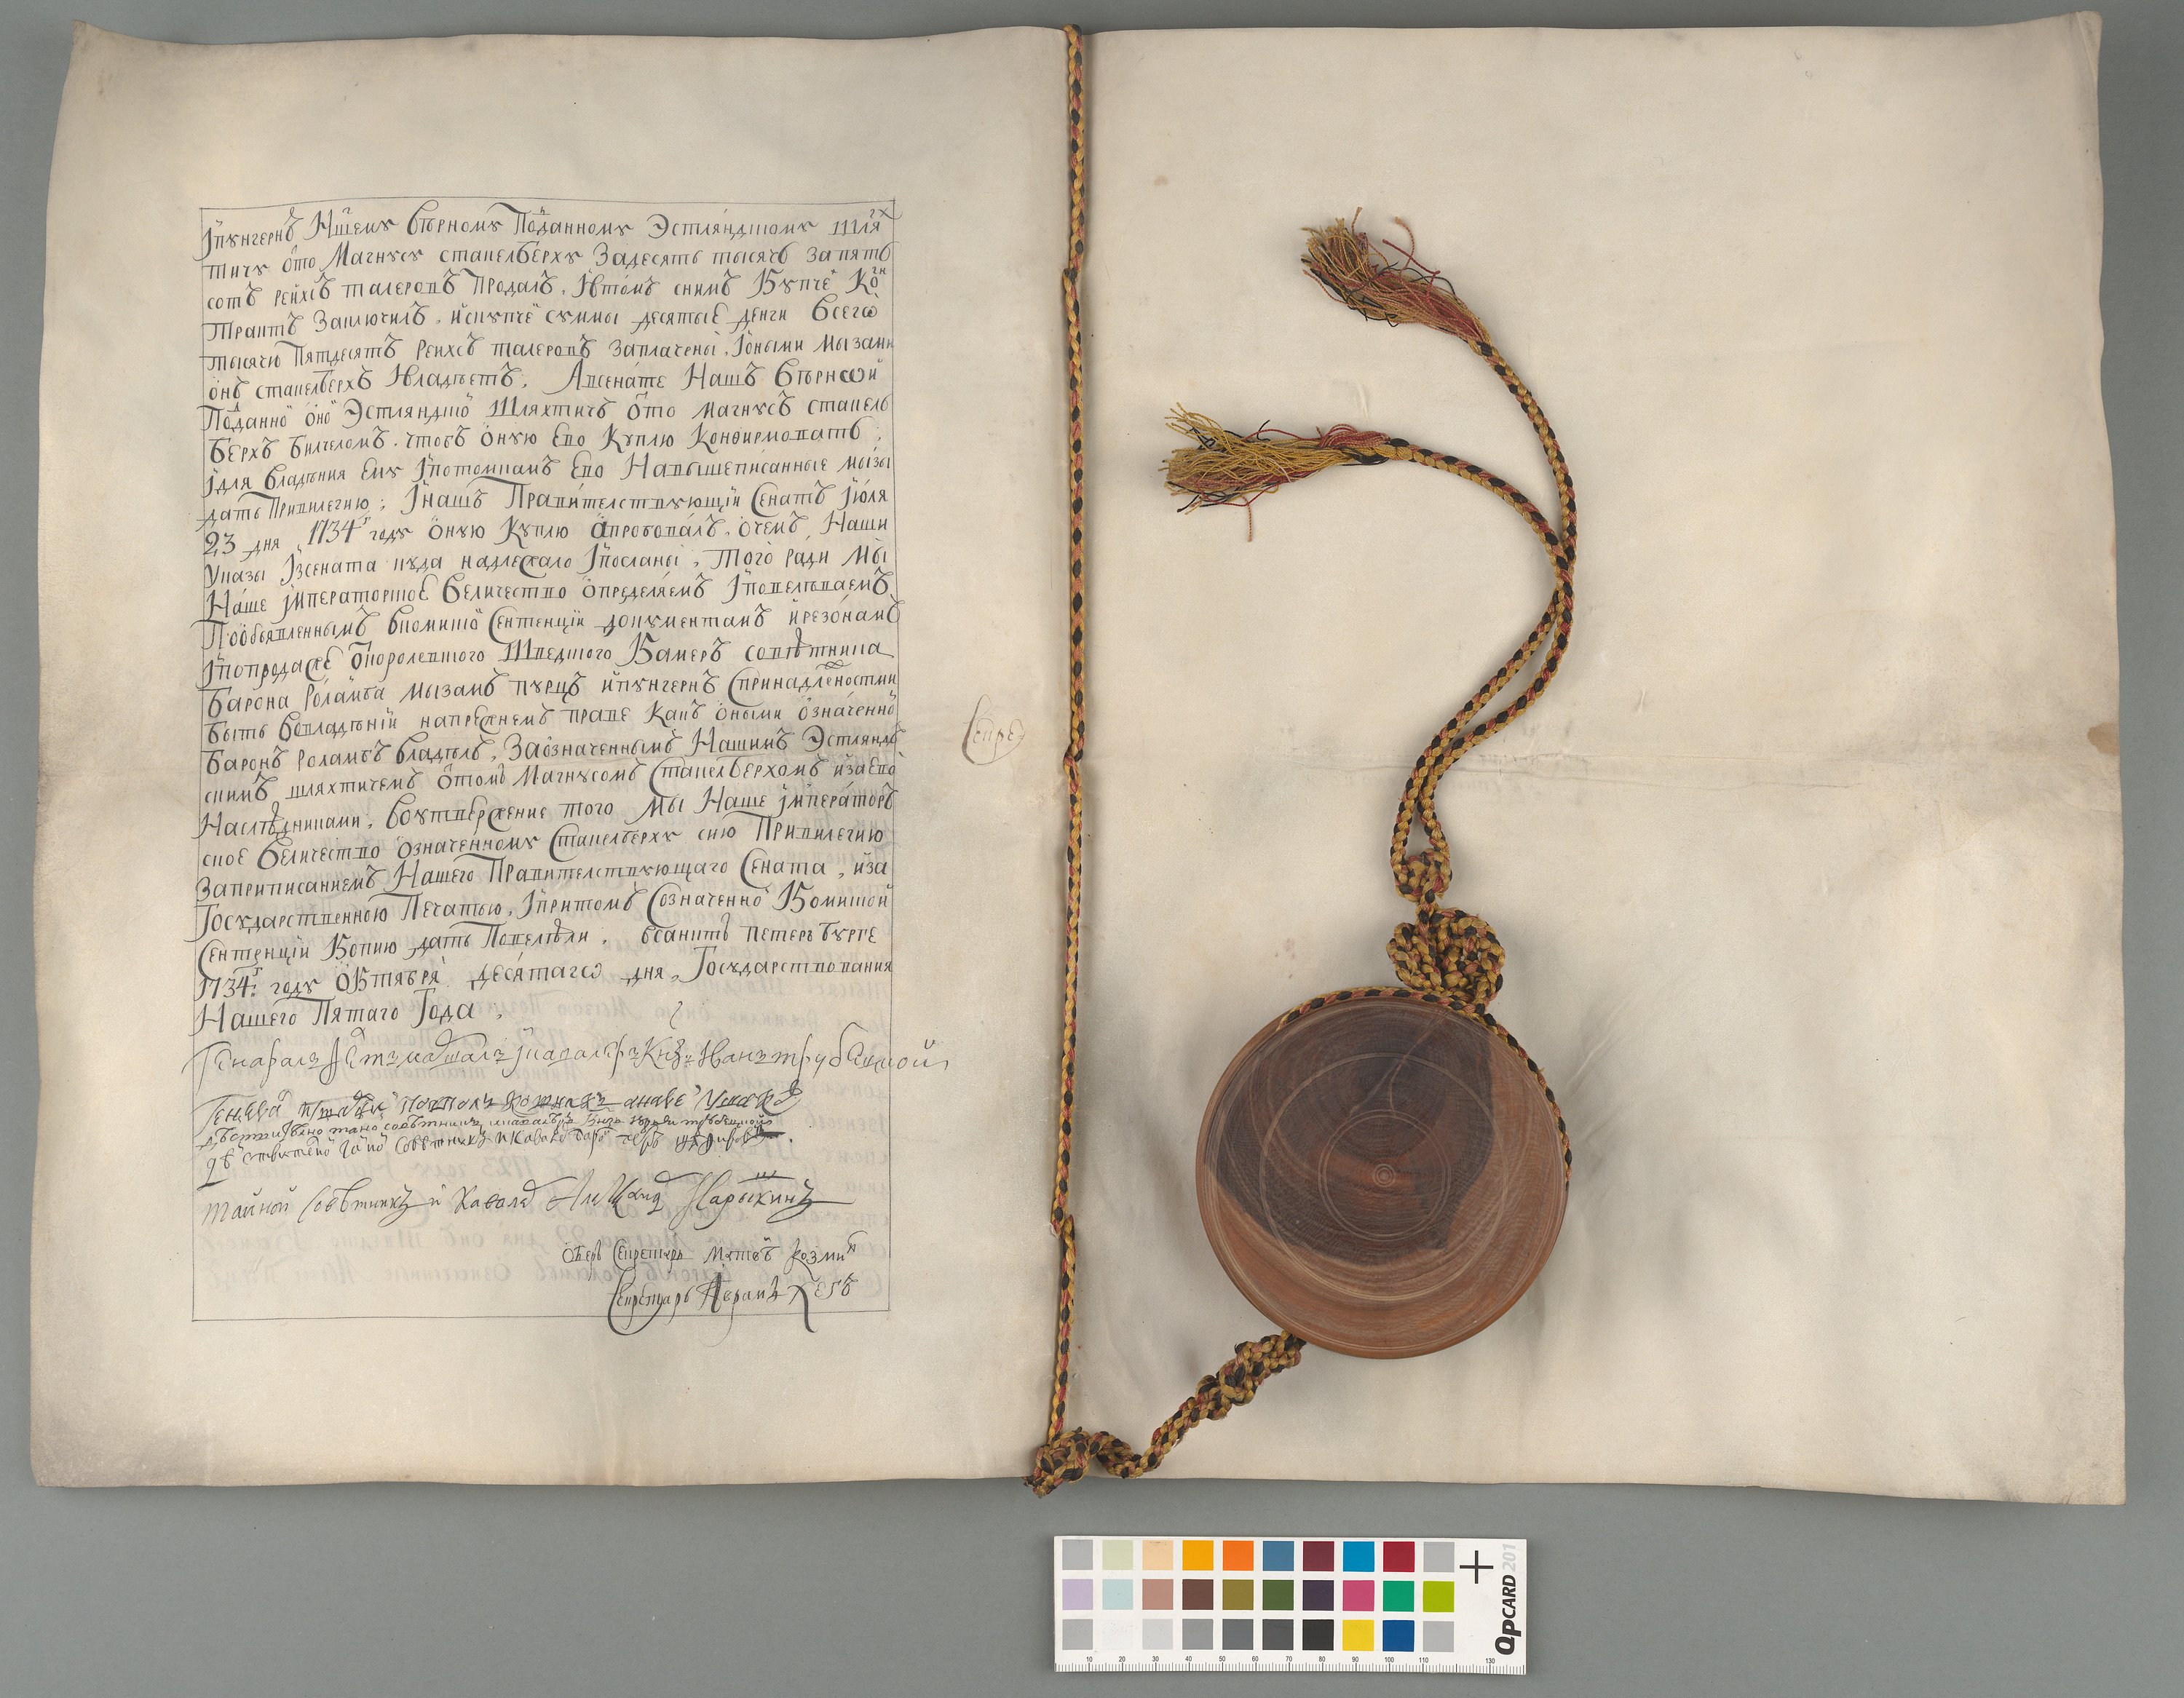 Jпунгернъ Нш҃ему Вѣрному Подданному Эстляндскому Шлях
тичу Ото Магнусу стакелберху Задесять тысячь запять
сотъ рейхсъ талеровъ Продалъ, Jвтомъ снимъ Купче Кон
трактъ Заключилъ, искупче суммы десятые денги Всегѡ
тысячю Пятдесятъ Реихсъ талеровъ заплачены, Jоными мызами
онъ стакелберхъ Jвладѣетъ, Авсенате Нашъ Вѣрнѡй
Подданно оно Эстляндско Шляхтичъ Ото магнусъ стакель
берхъ билчеломъ, чтобъ оную Ево Куплю Конѳирмовать,
Jдля владѣния Ему Jпотомкамъ Ево Навышеписанные мызы
дать Привилегию; Jнашъ Правителствующiи Сенатъ Jюля
23 дня 1734г году оную Куплю апробовалъ, очемъ Наши
Указы Jзсената куда надлежало Jпосланы, Того ради Мы
Наше Jмператорское Величество определяемъ Jповелѣваемъ
Пообъявленнымъ вкомиско Сентенцiи документамъ ирезонамъ
Jпопродаже Окоролевского Шведского Камеръ совѣтника
Барона Роламба мызамъ пурцъ ипунгернъ Спринадленостми
быть вовладѣнiи напрежнемъ праве Какъ оными означенно
Баронъ Роламбъ владѣлъ, Заозначеннымъ Нашимъ Эстлянд
скимъ шляхтичемъ Отомъ Магнусомъ Стакелберхомъ изаево
Наслѣдниками, Воутвержение того Мы Наше Jмператор
ское Величество означенному Стакелберху сию Привилегию
Заприписаниемъ Нашего Правителствующаго Сената, иза
Государственною Печатью, Jпритомъ Созначенно Комиской
Сентенцiи Копию дать Повелѣли, Всанктъ петеръ бурге
1734г году Октября десятагѡ дня, Государствования
Нашего Пятаго Года,
Генералъ Фелтъмаршалъ Jкавалеръ Кнзь Иванъ трубецкой
Генерал Андре Ушаковъ
тайной советникъ и кавалеръ князь Юрьи трубецкой
советникъ и Кавалеръ
тайной Совѣтникъ и Кавалер Александ Нарышкинъ
Оберъ Секретарь Матвѣ Козмин
Секретарь
Секре
10 20 30 40 50 60 70 80 90 100 110 130
QPCARD 201